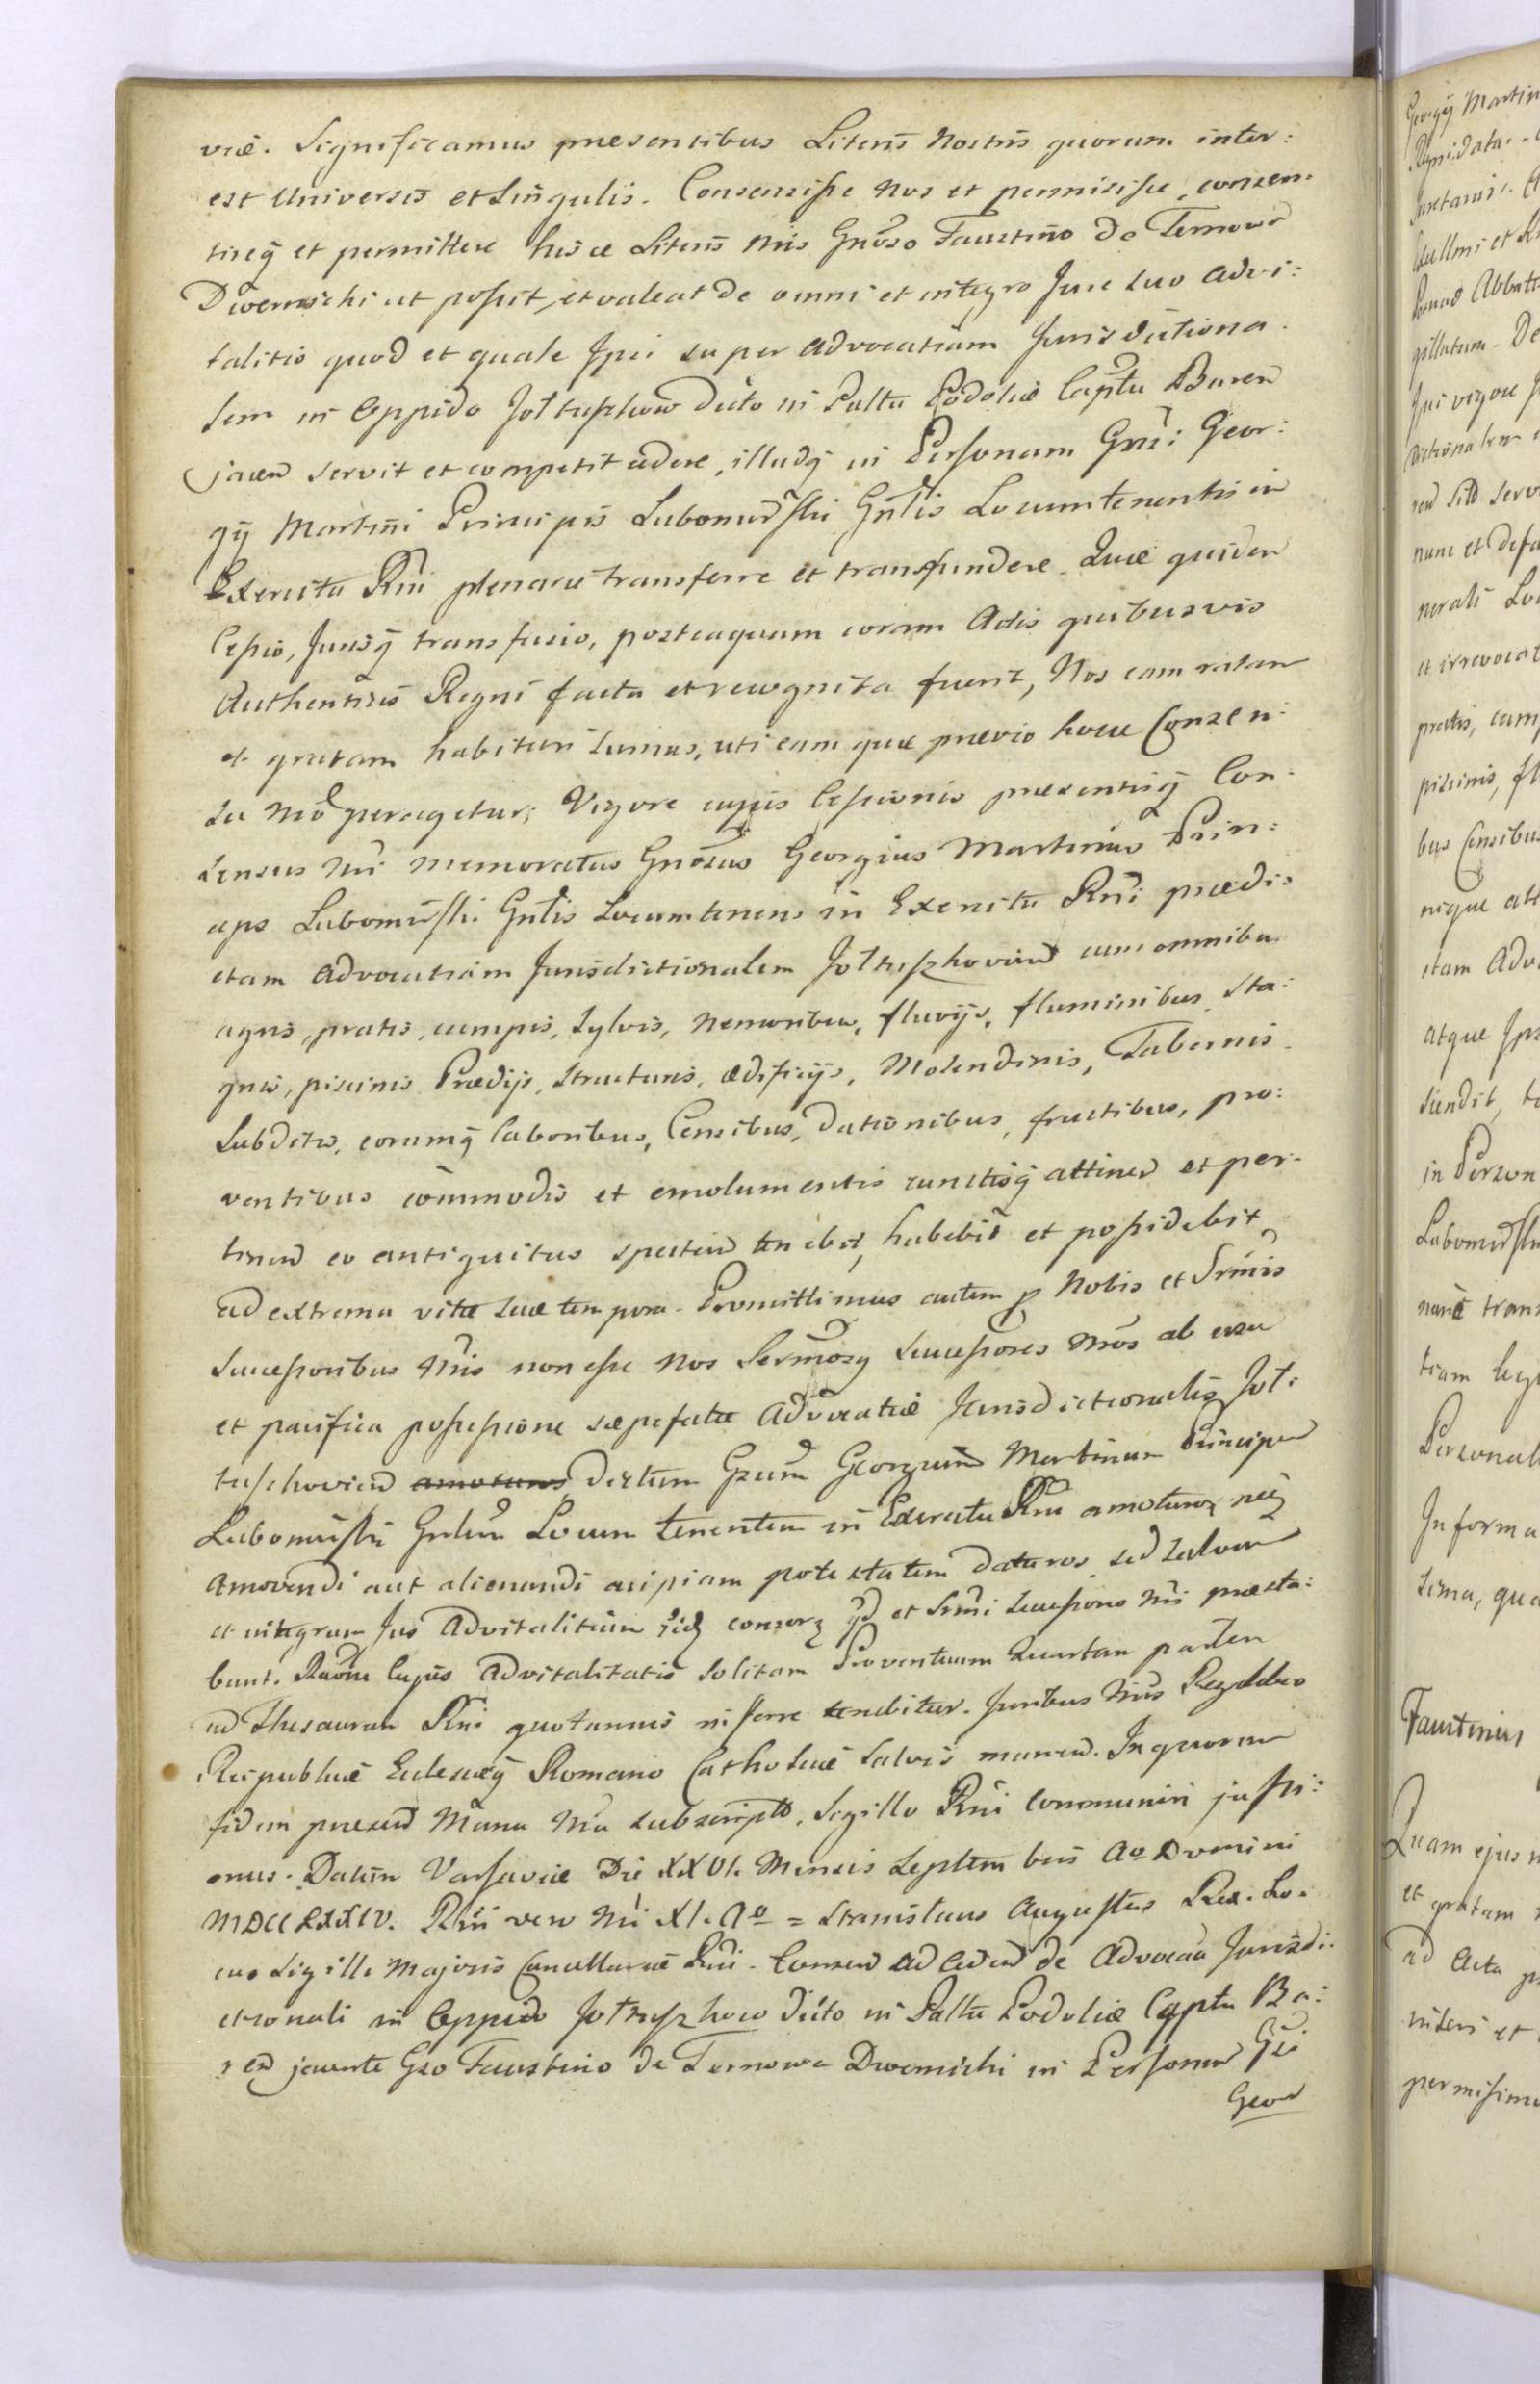 viæ. Significamus præsentibus Literis Nostris quorum inter:
est Universis et Singulis. Consensisse Nos et permisisse, consen:
tireq et permittere hisce Literis Nris Gnoso Faustino de Ternowa
Dwernicki ut possit, et valeat de omni et integro Jure suo advi:
talitio quod et quale Ipsi super Advocatiam Jurisdictiona
lem in Oppido Jołtuszkow dicto in Palltu Podoliæ Capttu Baren
jacen servit et competit cedere, illudq in Personam Gnsi Geor:
gij Martini Principis Lubomirski Gnlis Locumtenentis in
Exercitu Rni plenarie transferre et transfundere. Quæ quidem
Cessio, Jurisq transfusio, posteaquam coram Actis quibusvis
Authenticis Regni facta et recognita fuerit, Nos eam ratam
et gratam habituri sumus, uti eam quæ prævio hocce Consen:
su Nro peragetur; Vigore cujus Cessionis præsentisq Con:
sensus Nri memoratus Gnosus Georgius Martinus Prin:
ceps Lubomirski Gnlis Locumtenens in Exercitu Rni prædi:
ctam Advocatiam Jurisdictionalem Jołtuszkovien cum omnibus
agris, pratis, campis, Sylvis, Nemoribus, fluvijs, fluminibus, Sta:
gnis, piscinis, Prædijs, Structuris, ædificijs, Molendinis, Tabernis
Subditis, eorumq Laboribus, Censibus, Dationibus, fructibus, pro:
ventibus commodis et emolumentis cunctisq attinen et per:
tinen eo antiquitus spectan tenebit, habebit et possidebit
ad extrema vitæ suæ tempora. Promittimus autem p Nobis et Srmis
Successoribus Nris non esse Nos Sermosq Successores Nros ab usu
et pacifica possessione sæpefatæ Advocatiæ Jurisdictionalis Joł:
tuszkovien amoturos Dictum Gsum Georgium Martinum Principem
Lubomirski Gnlem Locum tenentem in Exercitu Rni amoturos neq
amovendi aut alienandi cuipiam potestatem daturos, sed salvum
et integrum Jus Advitalitium eidem conserv qd et Srmi Successores Nri præsta:
bunt. Raone Cujus Advitalitatis Solitam Proventuum Quartam partem
ad Thesaurum Rni quotannis inferre tenebitur. Juribus Nris Regalibus
Reipublicæ Ecclesiæq Romano Catholicæ Salvis manen. In quorum
fidem præsen Manu Nra subscript. Sigillo Rni Communiri jussi:
mus. Datum Varsaviæ Die XXVI. Mensis Septembris Ao Domini
MDCCLXXIV. Rni vero Nri XI. Ao = Stanislaus Augustus Rex. Lo:
cus Sigilli Majoris Cancellariæ Rni. Consen ad Ceden de Advocatia Jurisdi:
ctionali in Oppido Jołtuszkow dicto in Palltu Podoliæ Capttu Ba:
ren jacente Gso Faustino de Ternowa Dwernicki in Personam Gsi
Geor